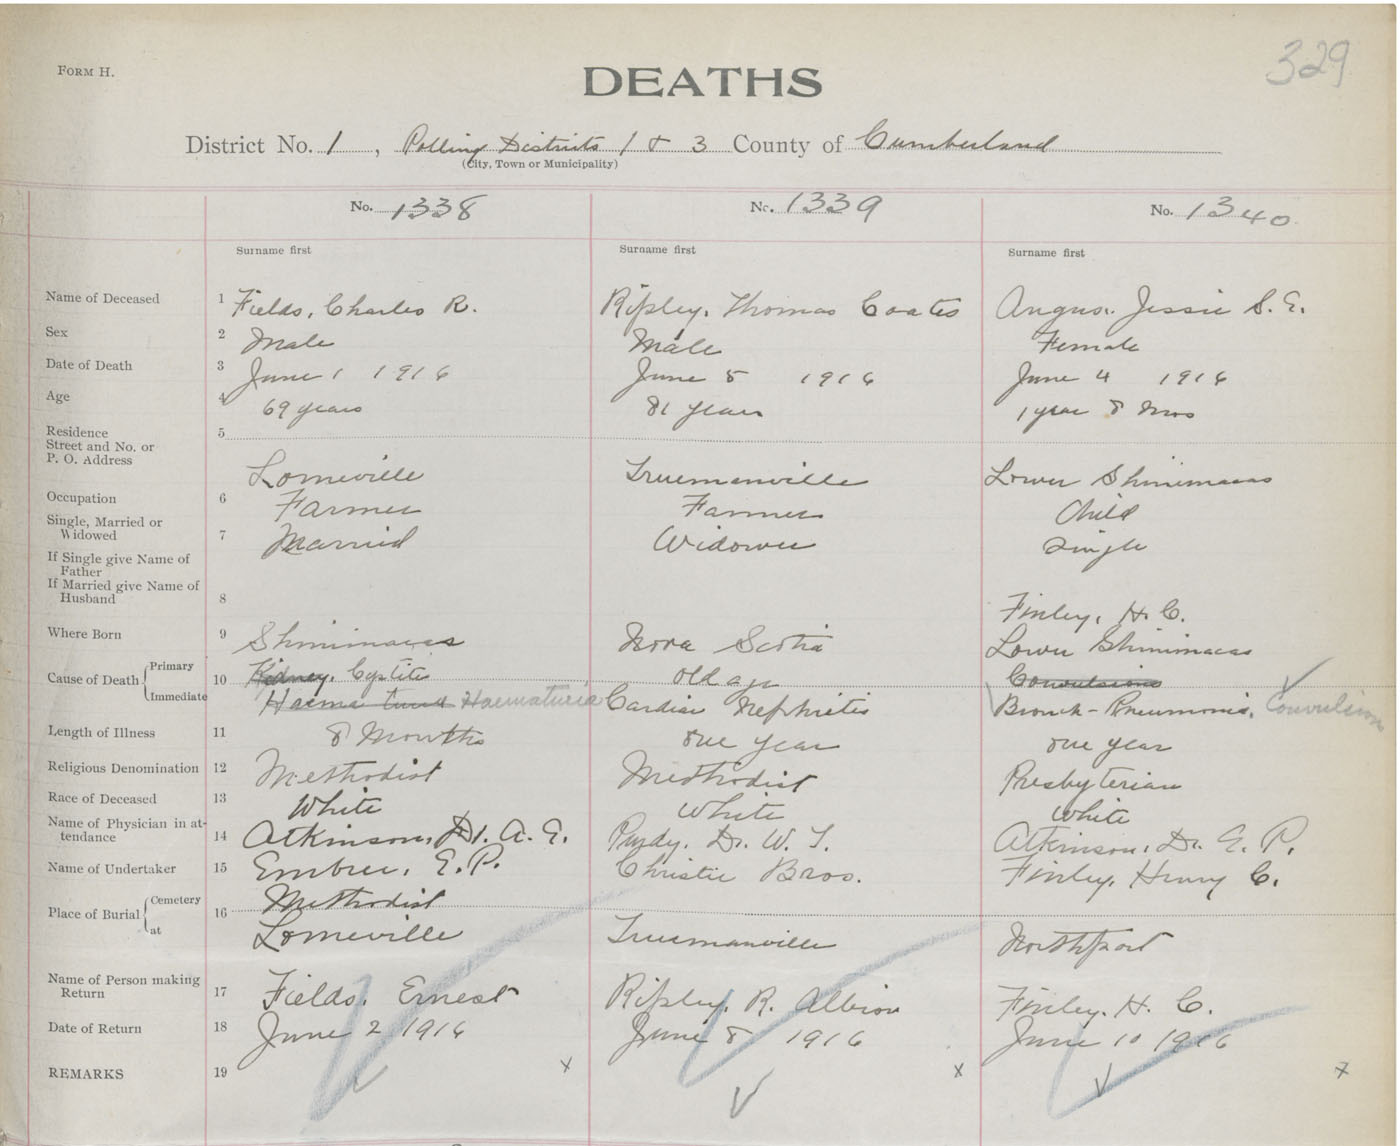 329
FORM H.
DEATHS
District No. 1, Polling Districts 1 & 3 County of Cumberland
(City, Town or Municipality)
No. 1338 No. 1339 No. 1340
Surname first Surname first Surname first
Name of Deceased 1 Fields, Charles R. Ripley, Thomas Coates Angus, Jessie S. E.
Sex 2 Male Male Female
Date of Death 3 June 1 1916 June 5 1916 June 4 1916
Age 4 69 years 81 years 1 year 8 mos
Residence 5
Street and No. or
P. O. Address Lorneville Truemanville Lower Shinimacas
Occupation 6 Farmer Farmer Child
Single, Married or
Widowed 7 Married Widower Single
If Single give Name of
Father
If Married give Name of
Husband 8 Finley, H. C.
Where Born 9 Shinimacas Nova Scotia Lower Shinimacas
Cause of Death Primary 10 Kidney, Cystitis old age Convulsions
Immediate Haematuria Haematuria Cardiac Nephritis Bronch-Pneumonia, Convulsion
Length of Illness 11 8 Months one year one year
Religious Denomination 12 Methodist Methodist Presbyterian
Race of Deceased 13 White White White
Name of Physician in at-
tendance 14 Atkinson, Dr. A. E. Purdy, Dr. W. T. Atkinson, Dr. E. P.
Name of Undertaker 15 Embree, E. P. Christie Bros. Finley, Henry C.
Place of Burial Cemetery 16 Methodist
at Lorneville Truemanville Northport
Name of Person making
Return 17 Fields, Ernest Ripley, R. Albion Finley, H. C.
Date of Return 18 June 2 1916 June 8 1916 June 10 1916
REMARKS 19 x x x